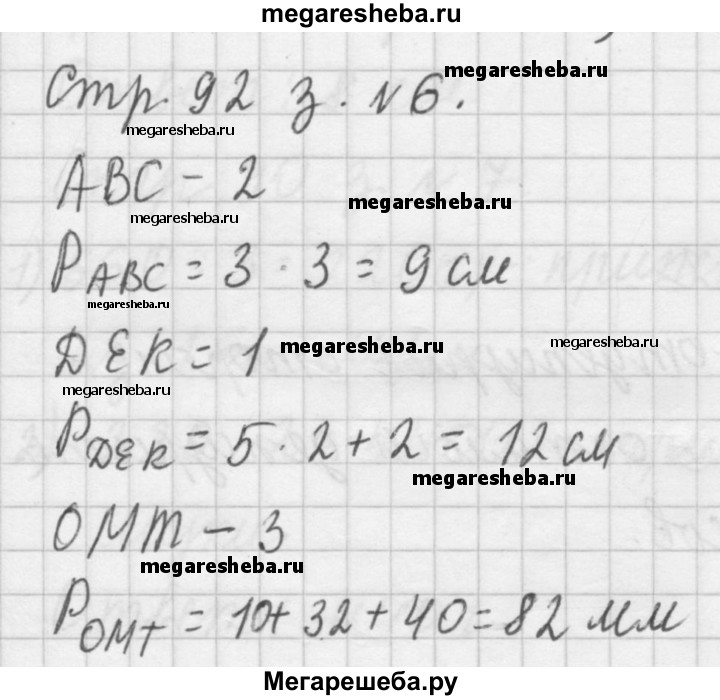 megaresheba.ru
Стр. 92 з. №6.
megaresheba.ru
megaresheba.ru
ABC - 2
megaresheba.ru
megaresheba.ru
P ABC = 3 · 3 = 9 см
megaresheba.ru
ДЕК = 1
megaresheba.ru
megaresheba.ru
megaresheba.ru
P ДЕК = 5 · 2 + 2 = 12 см
megaresheba.ru
ОМТ - 3
megaresheba.ru
P ОМТ = 10 + 32 + 40 = 82 мм
Мегарешеба.ру